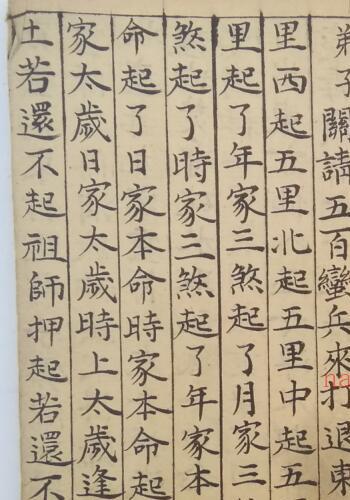 弟子關請五百蠻兵來打退東
里西起五里北起五里中起五
里起了年家三煞起了月家三
煞起了時家三煞起了年家本
命起了日家本命時家本命起
家太歲日家太歲時上太歲逢
土若還不起祖師押起若還不
na